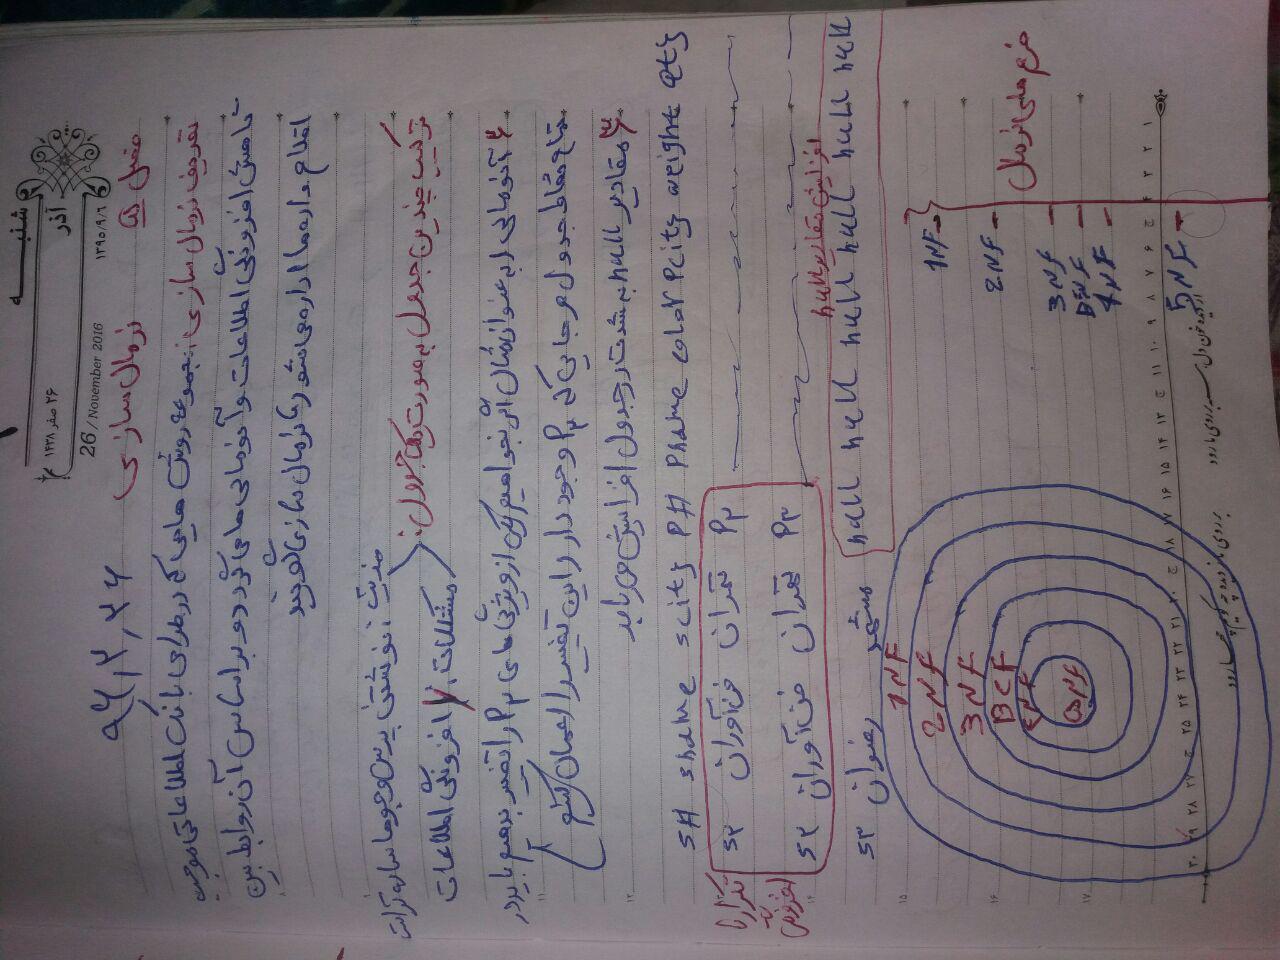 شنبه
آذر
۲۶ صفر ۱۴۳۸
26 / November 2016
۱۳۹۵/۹/۶
فصل ۵ نرمال سازی ۹۶,۲,۲۶
تعریف نرمال سازی: مجموعه روش هایی که در طراحی بانک اطلاعاتی موجب
کاهش افزونگی اطلاعات و آنومالی ها می گردد و بر اساس آن روابط بین
اقلام داده ها اداره می شود را نرمال سازی گویند
ترکیب چندین جدول به صورت یک جدول:
مزیت: نوشتن پرس و جوها ساده تر است
مشکلات: ۱) افزونگی اطلاعات
۲) آنومالی (به عنوان مثال اگر بخواهیم یکی از ویژگی های P۲ را تغییر بدهیم باید در
تمام نقاط جدول هر جایی که P۲ وجود دارد این تغییر را اعمال کنیم)
۳) مقادیر null به شدت در جدول افزایش می یابد
S# sname scity P# Pname color Pcity weight qty
S۲ فن آوران تهران P۲
S۲ فن آوران تهران P۳
تکرار یا
افزونگی
افزایش مقادیر null
S۳ رضوان مشهد null null null null null null
1NF
2NF
3NF
BCF
4NF
5NF
فرم های نرمال
1NF
2NF
3NF
BCNF
4NF
5NF
۱۵
۱۶
۱۷
۱ ۲ ۳ ۴ ج ۶ ۷ ۸ ۹ ۱۰ ۱۱ ج ۱۳ ۱۴ ۱۵ ۱۶ ۱۷ ۱۸ ج ۲۰ ۲۱ ۲۲ ۲۳ ۲۴ ۲۵ ج ۲۷ ۲۸ ۲۹ ۳۰
از دیده خون دل همه بر روی ما رود
بر روی ما ز دیده چه گویم چها رود